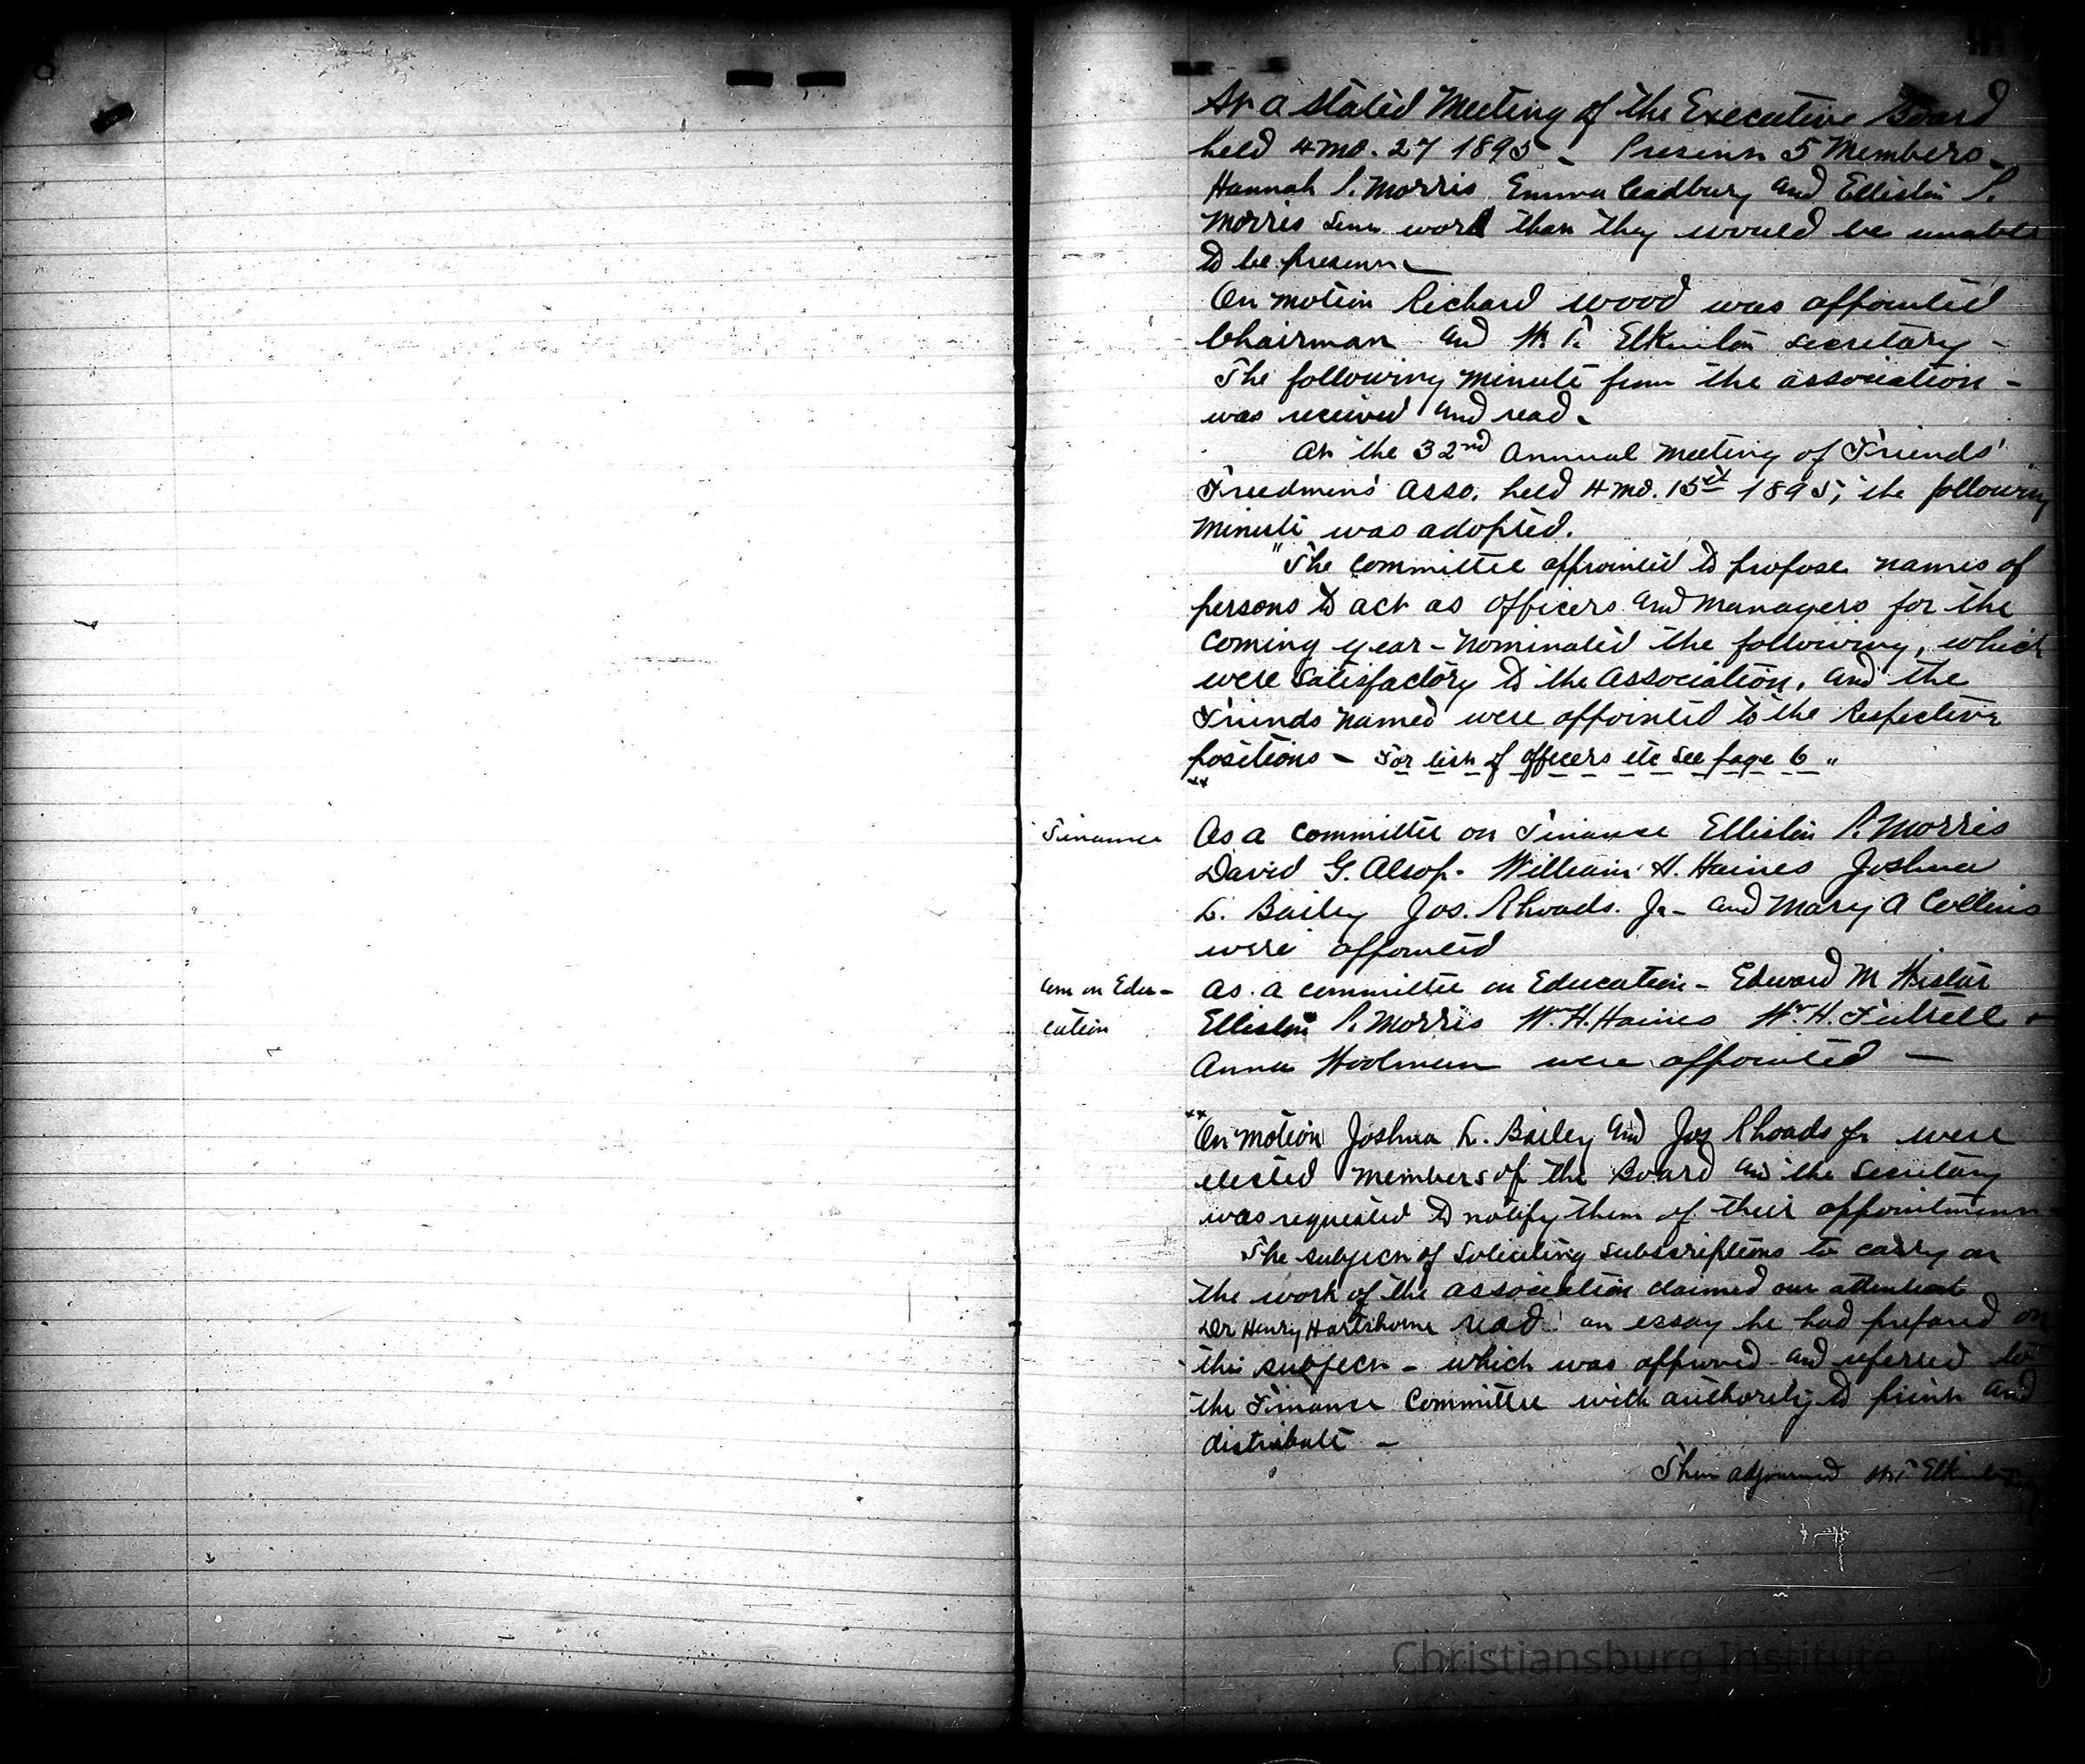 At a stated Meeting of the Executive Board
held 4 mo. 27 1895 - Present 5 Members -
Hannah P. Morris, Emma Cadbury and Elliston P.
Morris sent word that they would be unable
to be present -
On motion Richard Wood was appointed
Chairman and W. T. Elkinton secretary -
The following minute from the association -
was received and read -
At the 32nd Annual meeting of Friends'
Freedmen's Asso. held 4 mo. 15th 1895, the following
minute was adopted.
"The committee appointed to propose names of
persons to act as officers and managers for the
coming year - nominated the following, which
were satisfactory to the Association, and the
Friends named were appointed to the respective
positions - For list of officers etc see page 6 "
xx
Finance As a committee on Finance Elliston P. Morris
David G. Alsop. William H. Haines Joshua
L. Bailey Jos. Rhoads. Jr - and Mary A Collins
were appointed
Com on Edu- As a committee on Education - Edward M Wistar
cation Elliston P. Morris Wm. H. Haines Wm. H. Futrell &
Anna Woolman were appointed -
xx
On motion Joshua L. Bailey and Jos Rhoads Jr were
elected members of the Board and the Secretary
was requested to notify them of their appointment -
The subject of soliciting subscriptions to carry on
the work of the association claimed our attention
Dr Henry Hartshorne read an essay he had prepared on
this subject - which was approved and referred to
the Finance Committee with authority to print and
distribute -
Then adjourned W. T. Elkinton
Christiansburg Institute, I